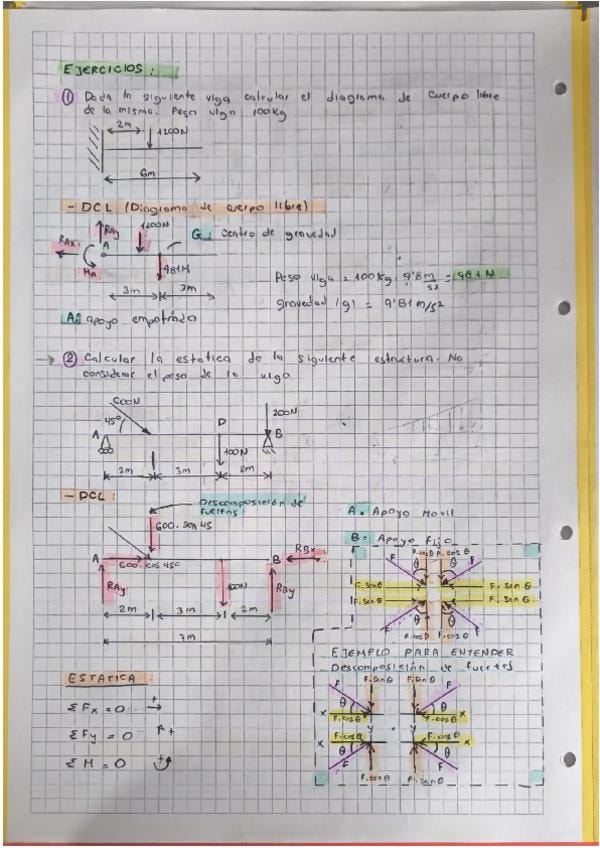 EJERCICIOS:
① Dada la siguiente viga calcular el diagrama de cuerpo libre
de la misma. Peso viga 100kg
2m
1200N
6m
- DCL (Diagrama de cuerpo libre)
RAy
1200N
G: centro de gravedad
RAx
A
MA
981N
Peso viga = 100kg · 9'8 m/s² = 981N
3m 3m
gravedad |g| = 9'81 m/s²
A: apoyo empotrado
→ ② Calcular la estatica de la siguiente estructura. No
considerar el peso de la viga
600N
200N
45°
D
A
B
100N
2m 3m 2m
- DCL:
Descomposición de
fuerzas
A. Apoyo Movil
600. sen 45
B= Apoyo fijo
RBx
A
B
600. cos 45º
RAy
100N
RBy
2m 3m 2m
7m
F F.cosθ F.cosθ F
θ θ
F.senθ F.senθ
F.senθ F.senθ
θ θ
F F.cosθ F.cosθ F
EJEMPLO PARA ENTENDER
Descomposición de fuerzas
F F.senθ F.senθ F
θ θ
X F.cosθ F.cosθ X
y y
X F.cosθ F.cosθ X
θ θ
F F.senθ F.senθ F
ESTATICA:
Σ Fx = 0 +→
Σ Fy = 0 ↑+
Σ M = 0 +↺